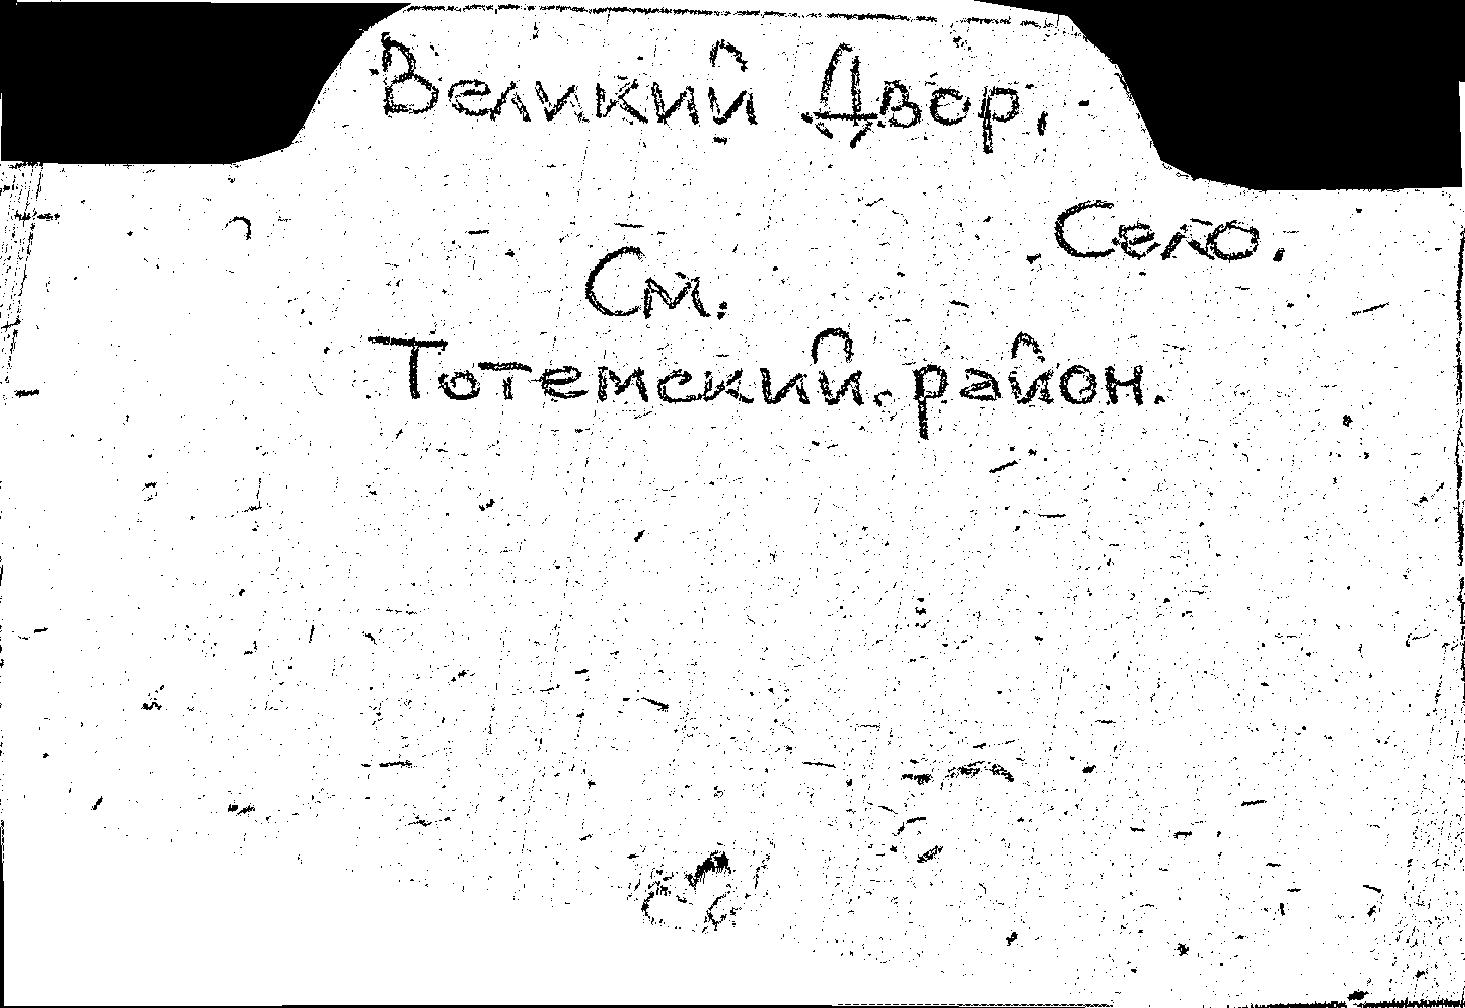 Великий Двор.
Село.
См.
Тотемский район.